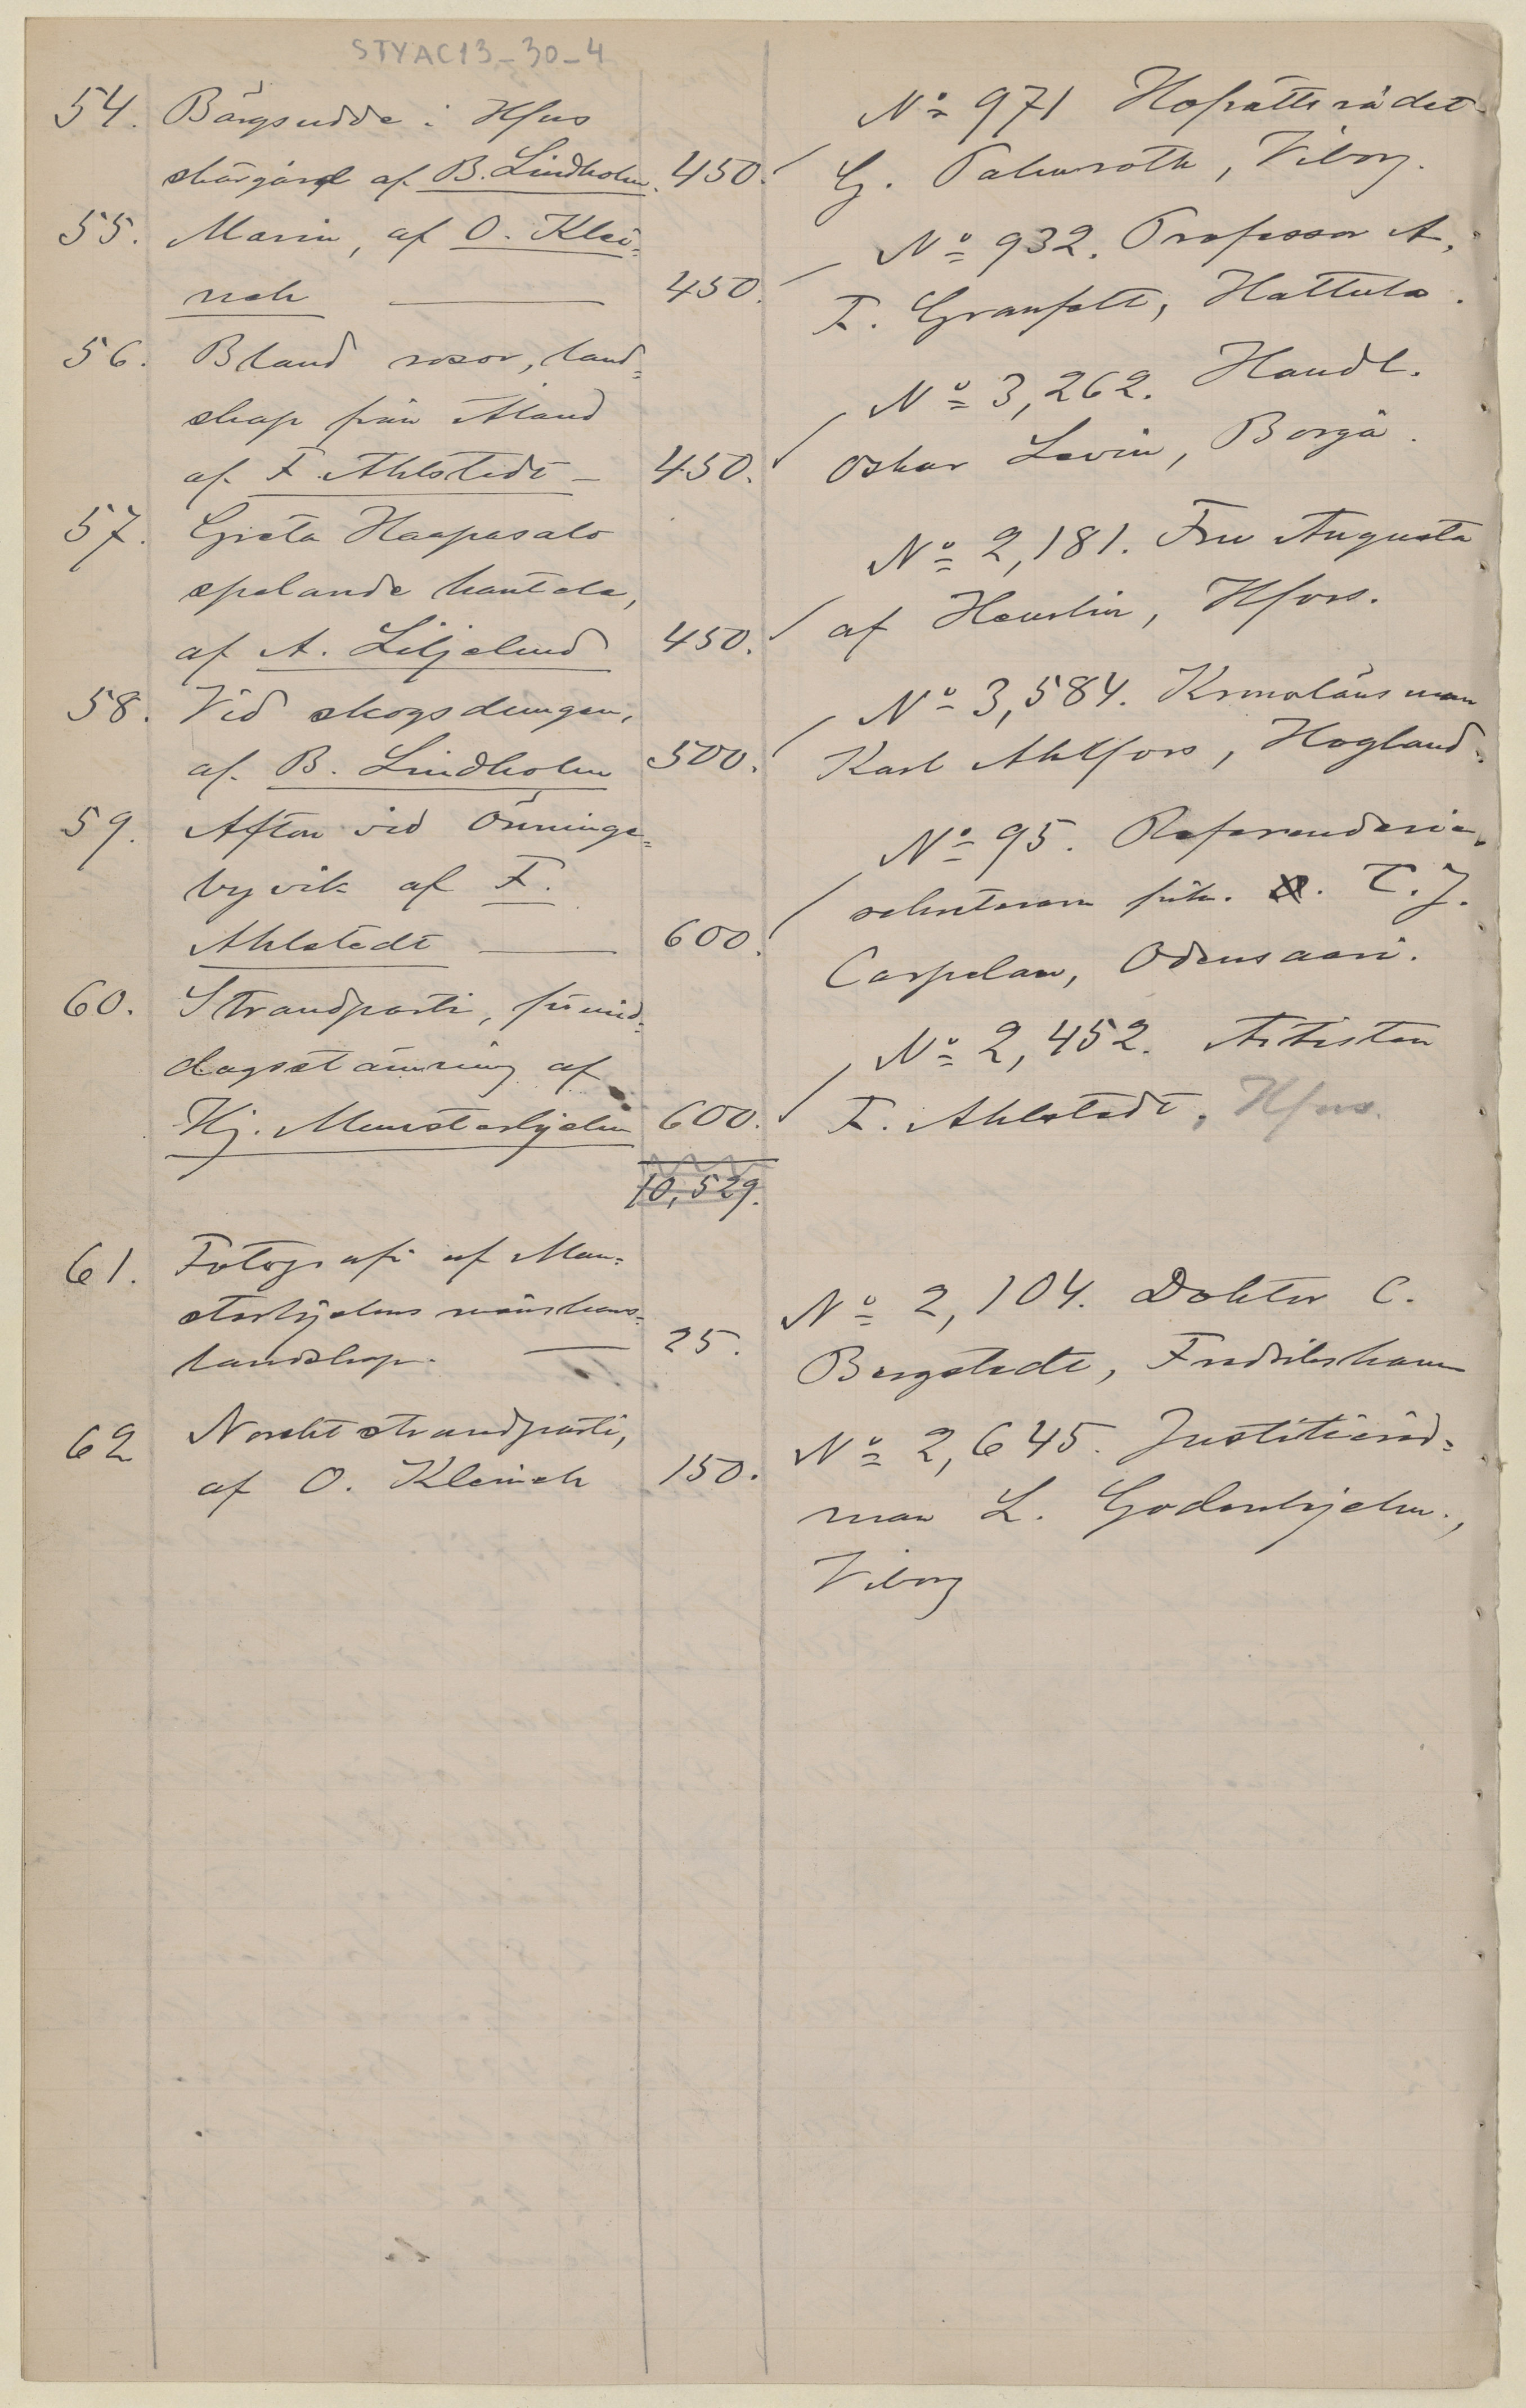 STYAC13-30-4
54. Bärgsudde i Hfors
skärgård af B. Lindholm. 450.
No 971 Hofrättsrådet
G. Palmroth, Viborg.
55. Marin, af O. Klei-
neh 450.
No 932. Professor A.
F. Granfelt, Hattula.
56. Bland rosor, land-
skap från Åland
af F. Ahlstedt 450.
No 3,262. Handl.
Oskar Levin, Borgå.
57. Greta Haapasalo
spelande kantele,
af A. Liljelund 450.
No 2,181. Fru Augusta
af Heurlin, Hfors.
58. Vid skogsdungen,
af B. Lindholm 500.
No 3,584. Kronolänsman
Karl Ahlfors, Hogland.
59. Afton vid Önninge-
byvik af F.
Ahlstedt 600.
No 95. Referendarie-
T. J.
Carpelan, Odensaari.
60. Strandparti, förmid-
dagsstämning af
Hj. Munsterhjelm 600.
No 2,452. Artisten
F. Ahlstedt, Hfors.
10,529.
61. Fotografi af Mun-
sterhjelms månskens-
landskap. 25.
No 2,104. Doktor C.
Bergstedt, Fredrikshamn
62 Norskt strandparti,
af O. Kleineh 150.
No 2,645. Justitieråd-
man L. Godenhjelm.,
Viborg